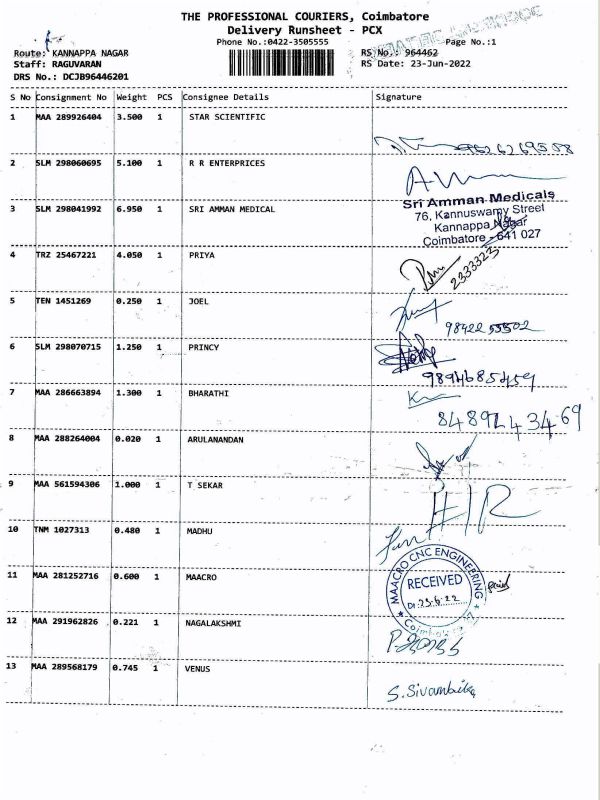 THE PROFESSIONAL COURIERS, Coimbatore
Delivery Runsheet - PCX
Phone No.:0422-3505555
Page No.:1
Route: KANNAPPA NAGAR
RS No.: 964462
Staff: RAGUVARAN
RS Date: 23-Jun-2022
DRS No.: DCJB96446201
S No Consignment No Weight PCS Consignee Details Signature
1 MAA 289926404 3.500 1 STAR SCIENTIFIC
2 SLM 298060695 5.100 1 R R ENTERPRICES
3 SLM 298041992 6.950 1 SRI AMMAN MEDICAL
Sri Amman Medicals
76, Kannuswamy Street
Kannappa Nagar
Coimbatore - 641 027
4 TRZ 25467221 4.050 1 PRIYA
2333323
5 TEN 1451269 0.250 1 JOEL
98422 55502
6 SLM 298070715 1.250 1 PRINCY
9894685459
7 MAA 286663894 1.300 1 BHARATHI
8 MAA 288264004 0.020 1 ARULANANDAN
9 MAA 561594306 1.000 1 T SEKAR
10 TNM 1027313 0.480 1 MADHU
11 MAA 281252716 0.600 1 MAACRO
MAACRO CNC ENGINEERING
RECEIVED
Dt:23.6.22
12 MAA 291962826 0.221 1 NAGALAKSHMI
13 MAA 289568179 0.745 1 VENUS
S. Sivambika